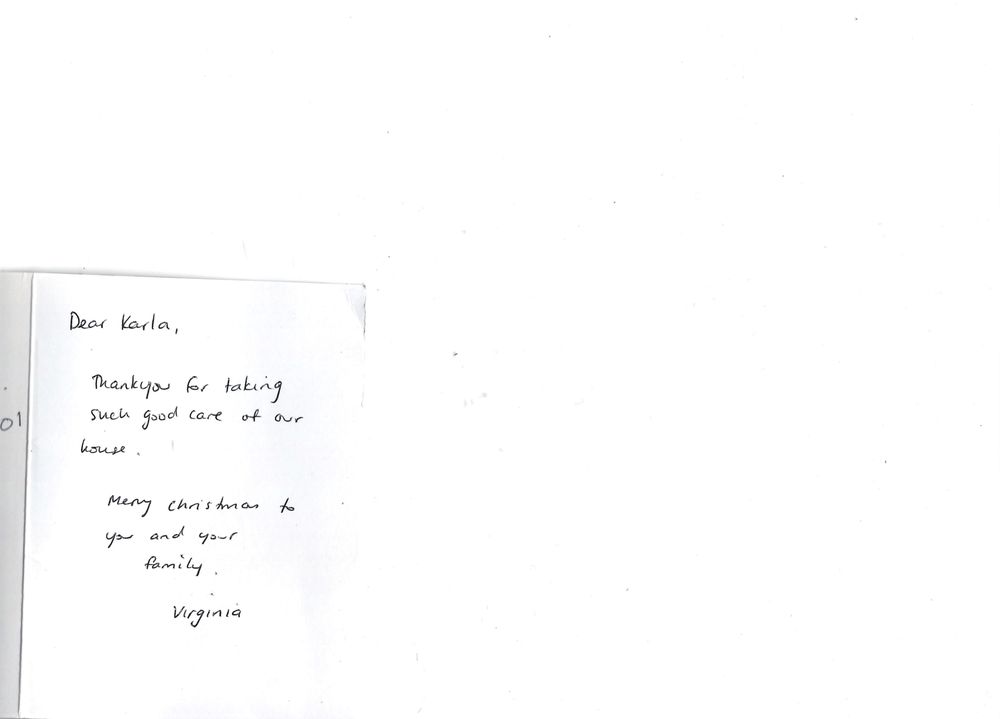 Dear Karla,
Thankyou for taking
such good care of our
house.
Merry christmas to
you and your
family.
Virginia
01